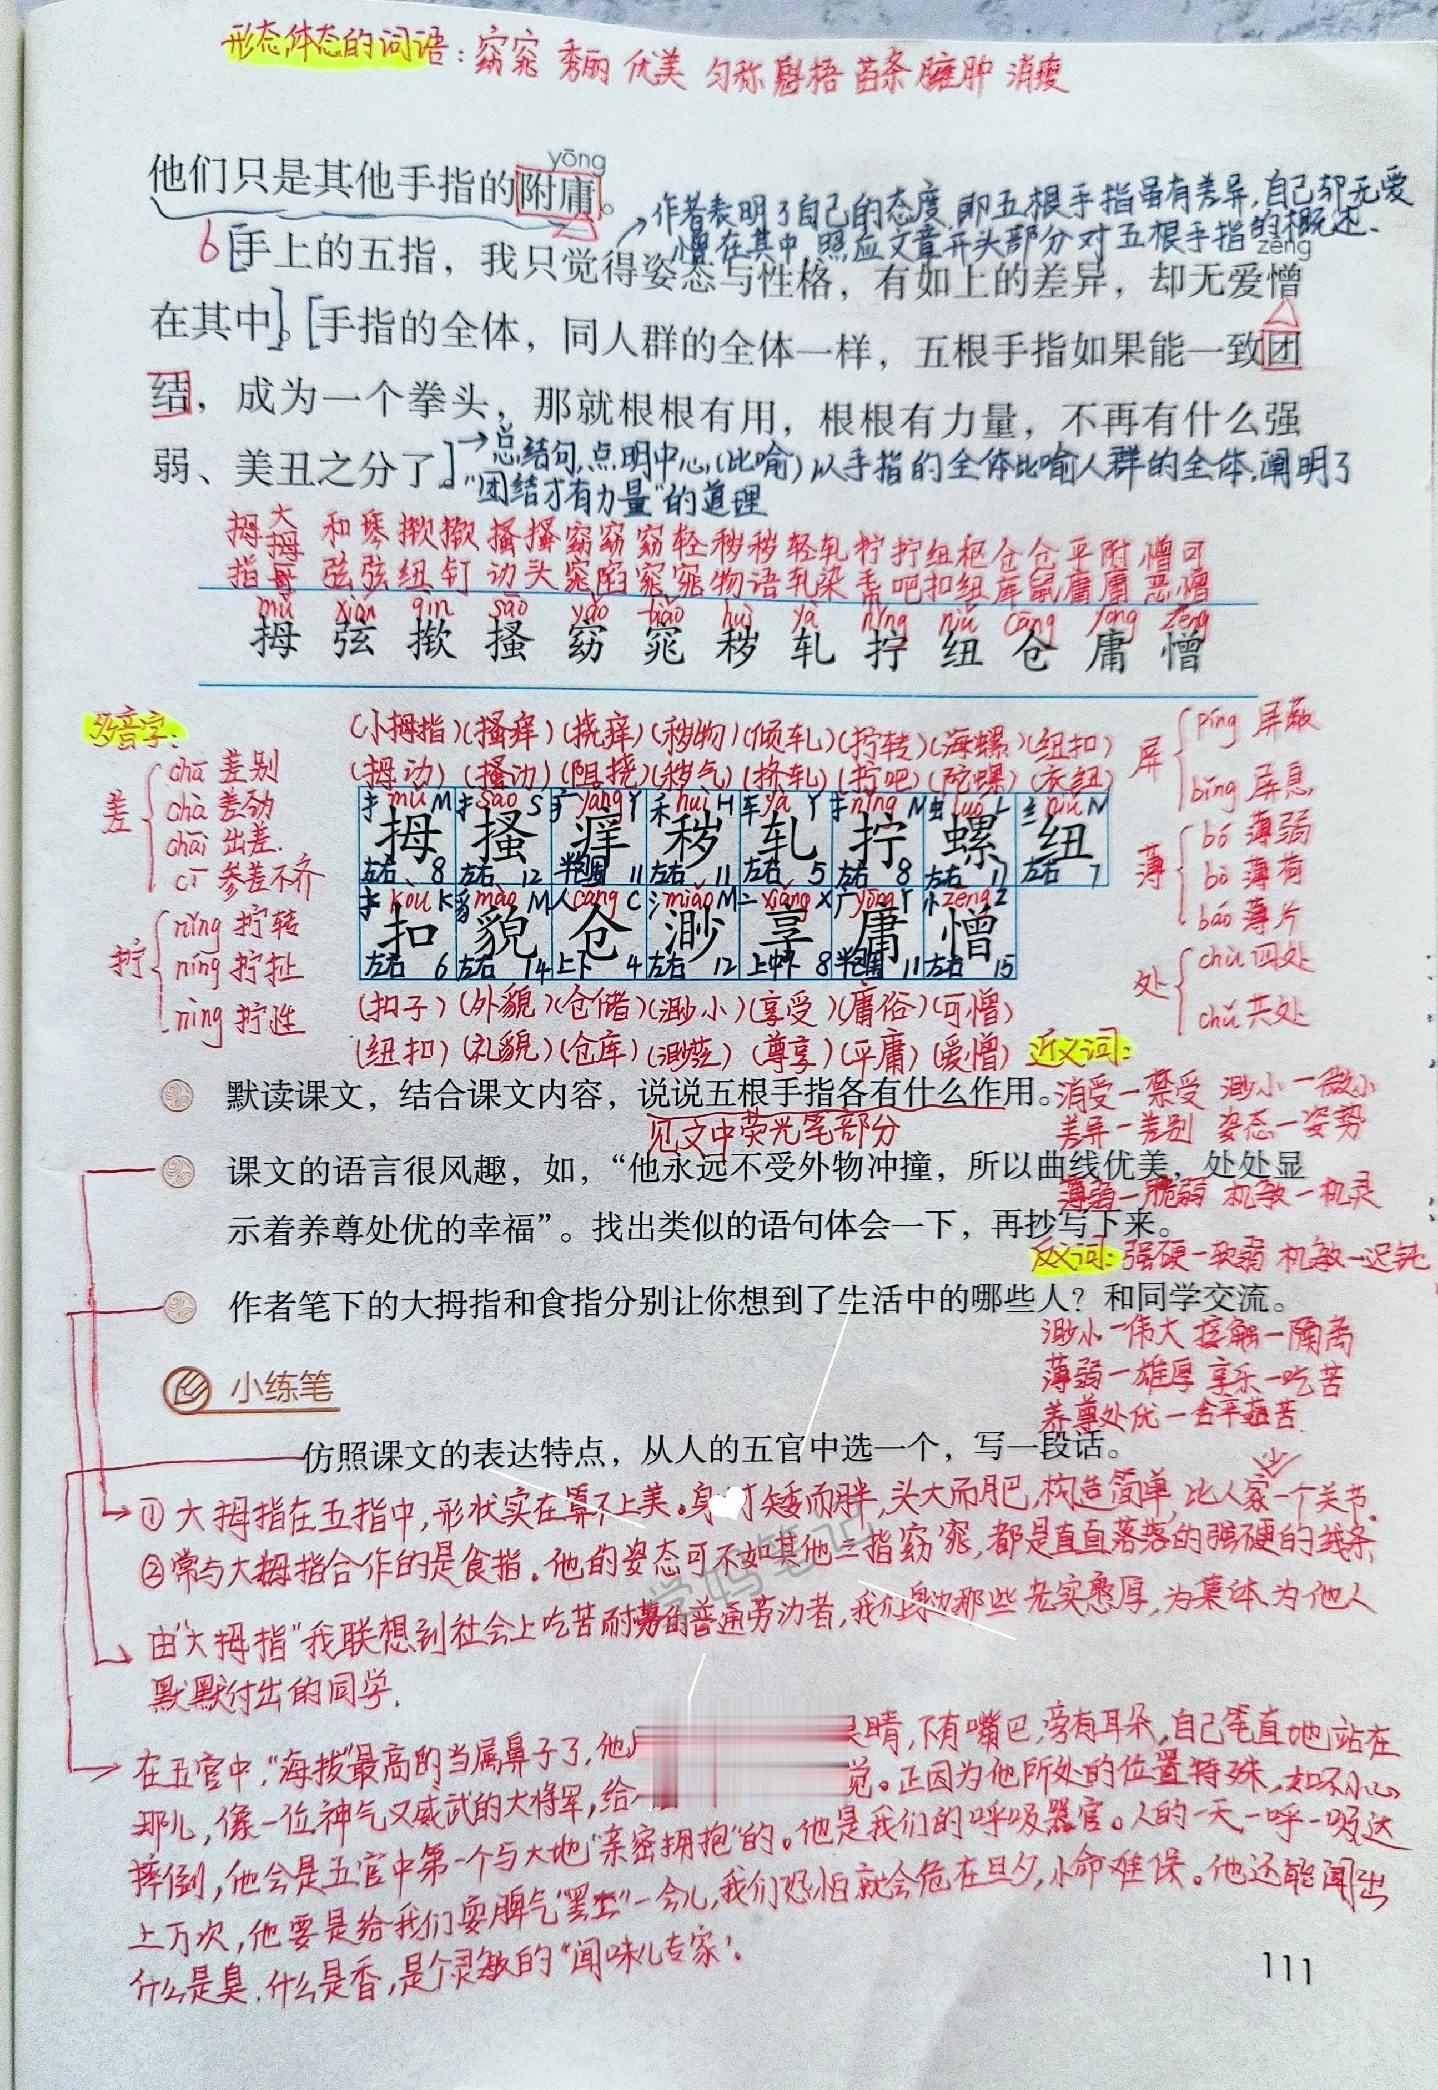 形态体态的词语：窈窕 秀丽 优美 匀称 魁梧 苗条 臃肿 消瘦
yōng
他们只是其他手指的附庸。
→作者表明了自己的态度,即五根手指虽有差异,自己却无爱
憎在其中,照应文章开头部分对五根手指的概述.
zēng
6[手上的五指，我只觉得姿态与性格，有如上的差异，却无爱憎
在其中]。[手指的全体，同人群的全体一样，五根手指如果能一致团
结，成为一个拳头，那就根根有用，根根有力量，不再有什么强
弱、美丑之分了]
→总结句,点明中心,(比喻)以手指的全体比喻人群的全体,阐明了
“团结才有力量”的道理
拇 大 和 琴 揿 揿 搔 搔 窈 窈 窈 轻 秽 秽 轻 轧 柠 拧 纽 枢 仓 仓 平 附 憎 可
指 拇 弦 弦 纽 钉 动 头 窕 陷 窕 窕 物 语 轧 染 毛 吧 扣 纽 库 鼠 庸 庸 恶 憎
指
mǔ xián qìn sāo yǎo tiǎo huì yà nǐng niǔ cāng yōng zēng
拇 弦 揿 搔 窈 窕 秽 轧 拧 纽 仓 庸 憎
多音字：
差 chā 差别
chà 差劲
chāi 出差.
cī 参差不齐
拧 nǐng 拧转
níng 拧扯
nìng 拧性
(小拇指)(搔痒)(挠痒)(秽物)(倾轧)(拧转)(海螺)(纽扣)
(拇动)(搔动)(阻挠)(秽气)(挤轧)(拧吧)(陀螺)(衣纽)
扌mǔ M 扌sāo S 疒yǎng Y 禾huì H 车yà Y 扌nǐng M 虫luó L 纟niǔ N
拇 搔 痒 秽 轧 拧 螺 纽
左右 8 左右 12 半包围 11 左右 11 左右 5 左右 8 左右 17 左右 7
扌kòu K 豸mào M 人cāng C 氵miǎo M 亠xiǎng X 广yōng Y 忄zēng Z
扣 貌 仓 渺 享 庸 憎
左右 6 左右 14 上下 4 左右 12 上中下 8 半包围 11 左右 15
(扣子)(外貌)(仓储)(渺小)(享受)(庸俗)(可憎)
(纽扣)(礼貌)(仓库)(渺茫)(尊享)(平庸)(爱憎)
屏 píng 屏蔽
bǐng 屏息
薄 bó 薄弱
bò 薄荷
báo 薄片
处 chù 四处
chǔ 共处
近义词：
消受－禁受 渺小－微小
差异－差别 姿态－姿势
薄弱－脆弱 机敏－机灵
默读课文，结合课文内容，说说五根手指各有什么作用。
见文中荧光笔部分
课文的语言很风趣，如，“他永远不受外物冲撞，所以曲线优美，处处显
示着养尊处优的幸福”。找出类似的语句体会一下，再抄写下来。
反义词：强硬－软弱 机敏－迟钝
作者笔下的大拇指和食指分别让你想到了生活中的哪些人？和同学交流。
渺小－伟大 接触－隔离
薄弱－雄厚 享乐－吃苦
养尊处优－含辛茹苦
小练笔
仿照课文的表达特点，从人的五官中选一个，写一段话。
①大拇指在五指中,形状实在算不上美。身材矮而胖,头大而肥,构造简单,比人家少一个关节.
②常与大拇指合作的是食指。他的姿态可不如其他三指窈窕,都是直直落落的强硬的线条
学吗笔记
由“大拇指”我联想到社会上吃苦耐劳的普通劳动者,我们身边那些老实憨厚,为集体为他人
默默付出的同学.
在五官中,“海拔”最高的当属鼻子了,他 眼睛,下有嘴巴,旁有耳朵,自己笔直地站在
那儿,像一位神气又威武的大将军,给 觉。正因为他所处的位置特殊,如不小心
摔倒,他会是五官中第一个与大地“亲密拥抱”的。他是我们的呼吸器官。人的一天一呼一吸达
上万次,他要是给我们耍脾气“罢工”一会儿,我们恐怕就会危在旦夕,小命难保。他还能闻出
什么是臭.什么是香,是个灵敏的“闻味儿专家”.
111